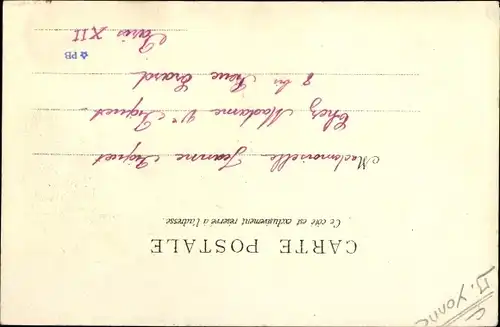 CARTE POSTALE
Ce côté est exclusivement réservé à l'adresse
Mademoiselle Jeanne Piquet
Chez Madame Vve Piquet
8 bis Rue Erard
Paris XII
☆PB
D. Yonne